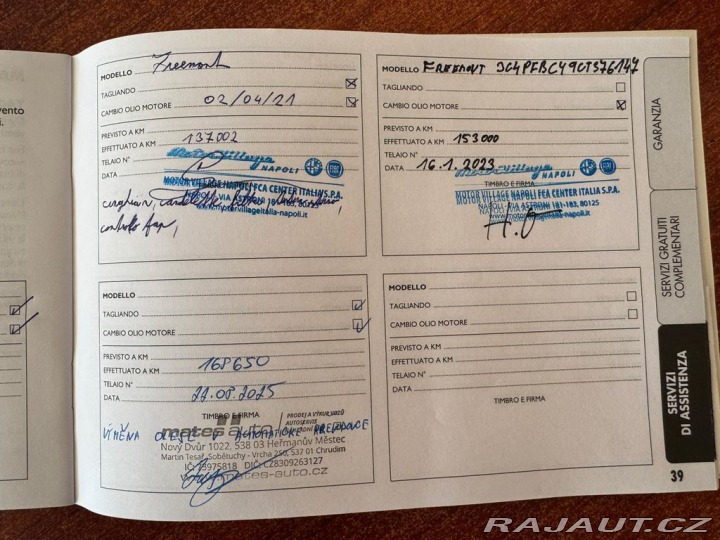 MODELLO Freemont
TAGLIANDO
02/04/21
CAMBIO OLIO MOTORE
PREVISTO A KM
137002
EFFETTUATO A KM
TELAIO N°
Motor Village
NAPOLI
DATA
MOTOR VILLAGE NAPOLI FCA CENTER ITALIA S.P.A.
NAPOLI - VIA ASTRONI 181-183, 80125
www.motorvillageitalia-napoli.it
controllo
MODELLO FREEMONT 3C4PFBCY9CT376147
TAGLIANDO
CAMBIO OLIO MOTORE
PREVISTO A KM
EFFETTUATO A KM 153000
TELAIO N°
Motor Village
NAPOLI
DATA 16.1.2023
TIMBRO E FIRMA
MOTOR VILLAGE NAPOLI FCA CENTER ITALIA S.P.A.
NAPOLI - VIA ASTRONI 181-183, 80125
MODELLO
TAGLIANDO
CAMBIO OLIO MOTORE
PREVISTO A KM
EFFETTUATO A KM 168650
TELAIO N°
DATA 22.08.2025
TIMBRO E FIRMA
mates auto
PRODEJ A VÝKUP VOZŮ
AUTOSERVIS
VÝMĚNA OLEJE V AUTOMATICKÉ PŘEVODOVCE
Nový Dvůr 1022, 538 03 Heřmanův Městec
Martin Tesař, Sobětuchy - Vrcha 250, 537 01 Chrudim
IČ: 13975818 DIČ: CZ8309263127
www.mates-auto.cz
MODELLO
TAGLIANDO
CAMBIO OLIO MOTORE
PREVISTO A KM
EFFETTUATO A KM
TELAIO N°
DATA
TIMBRO E FIRMA
GARANZIA
SERVIZI GRATUITI
COMPLEMENTARI
SERVIZI
DI ASSISTENZA
39
RAJAUT.CZ